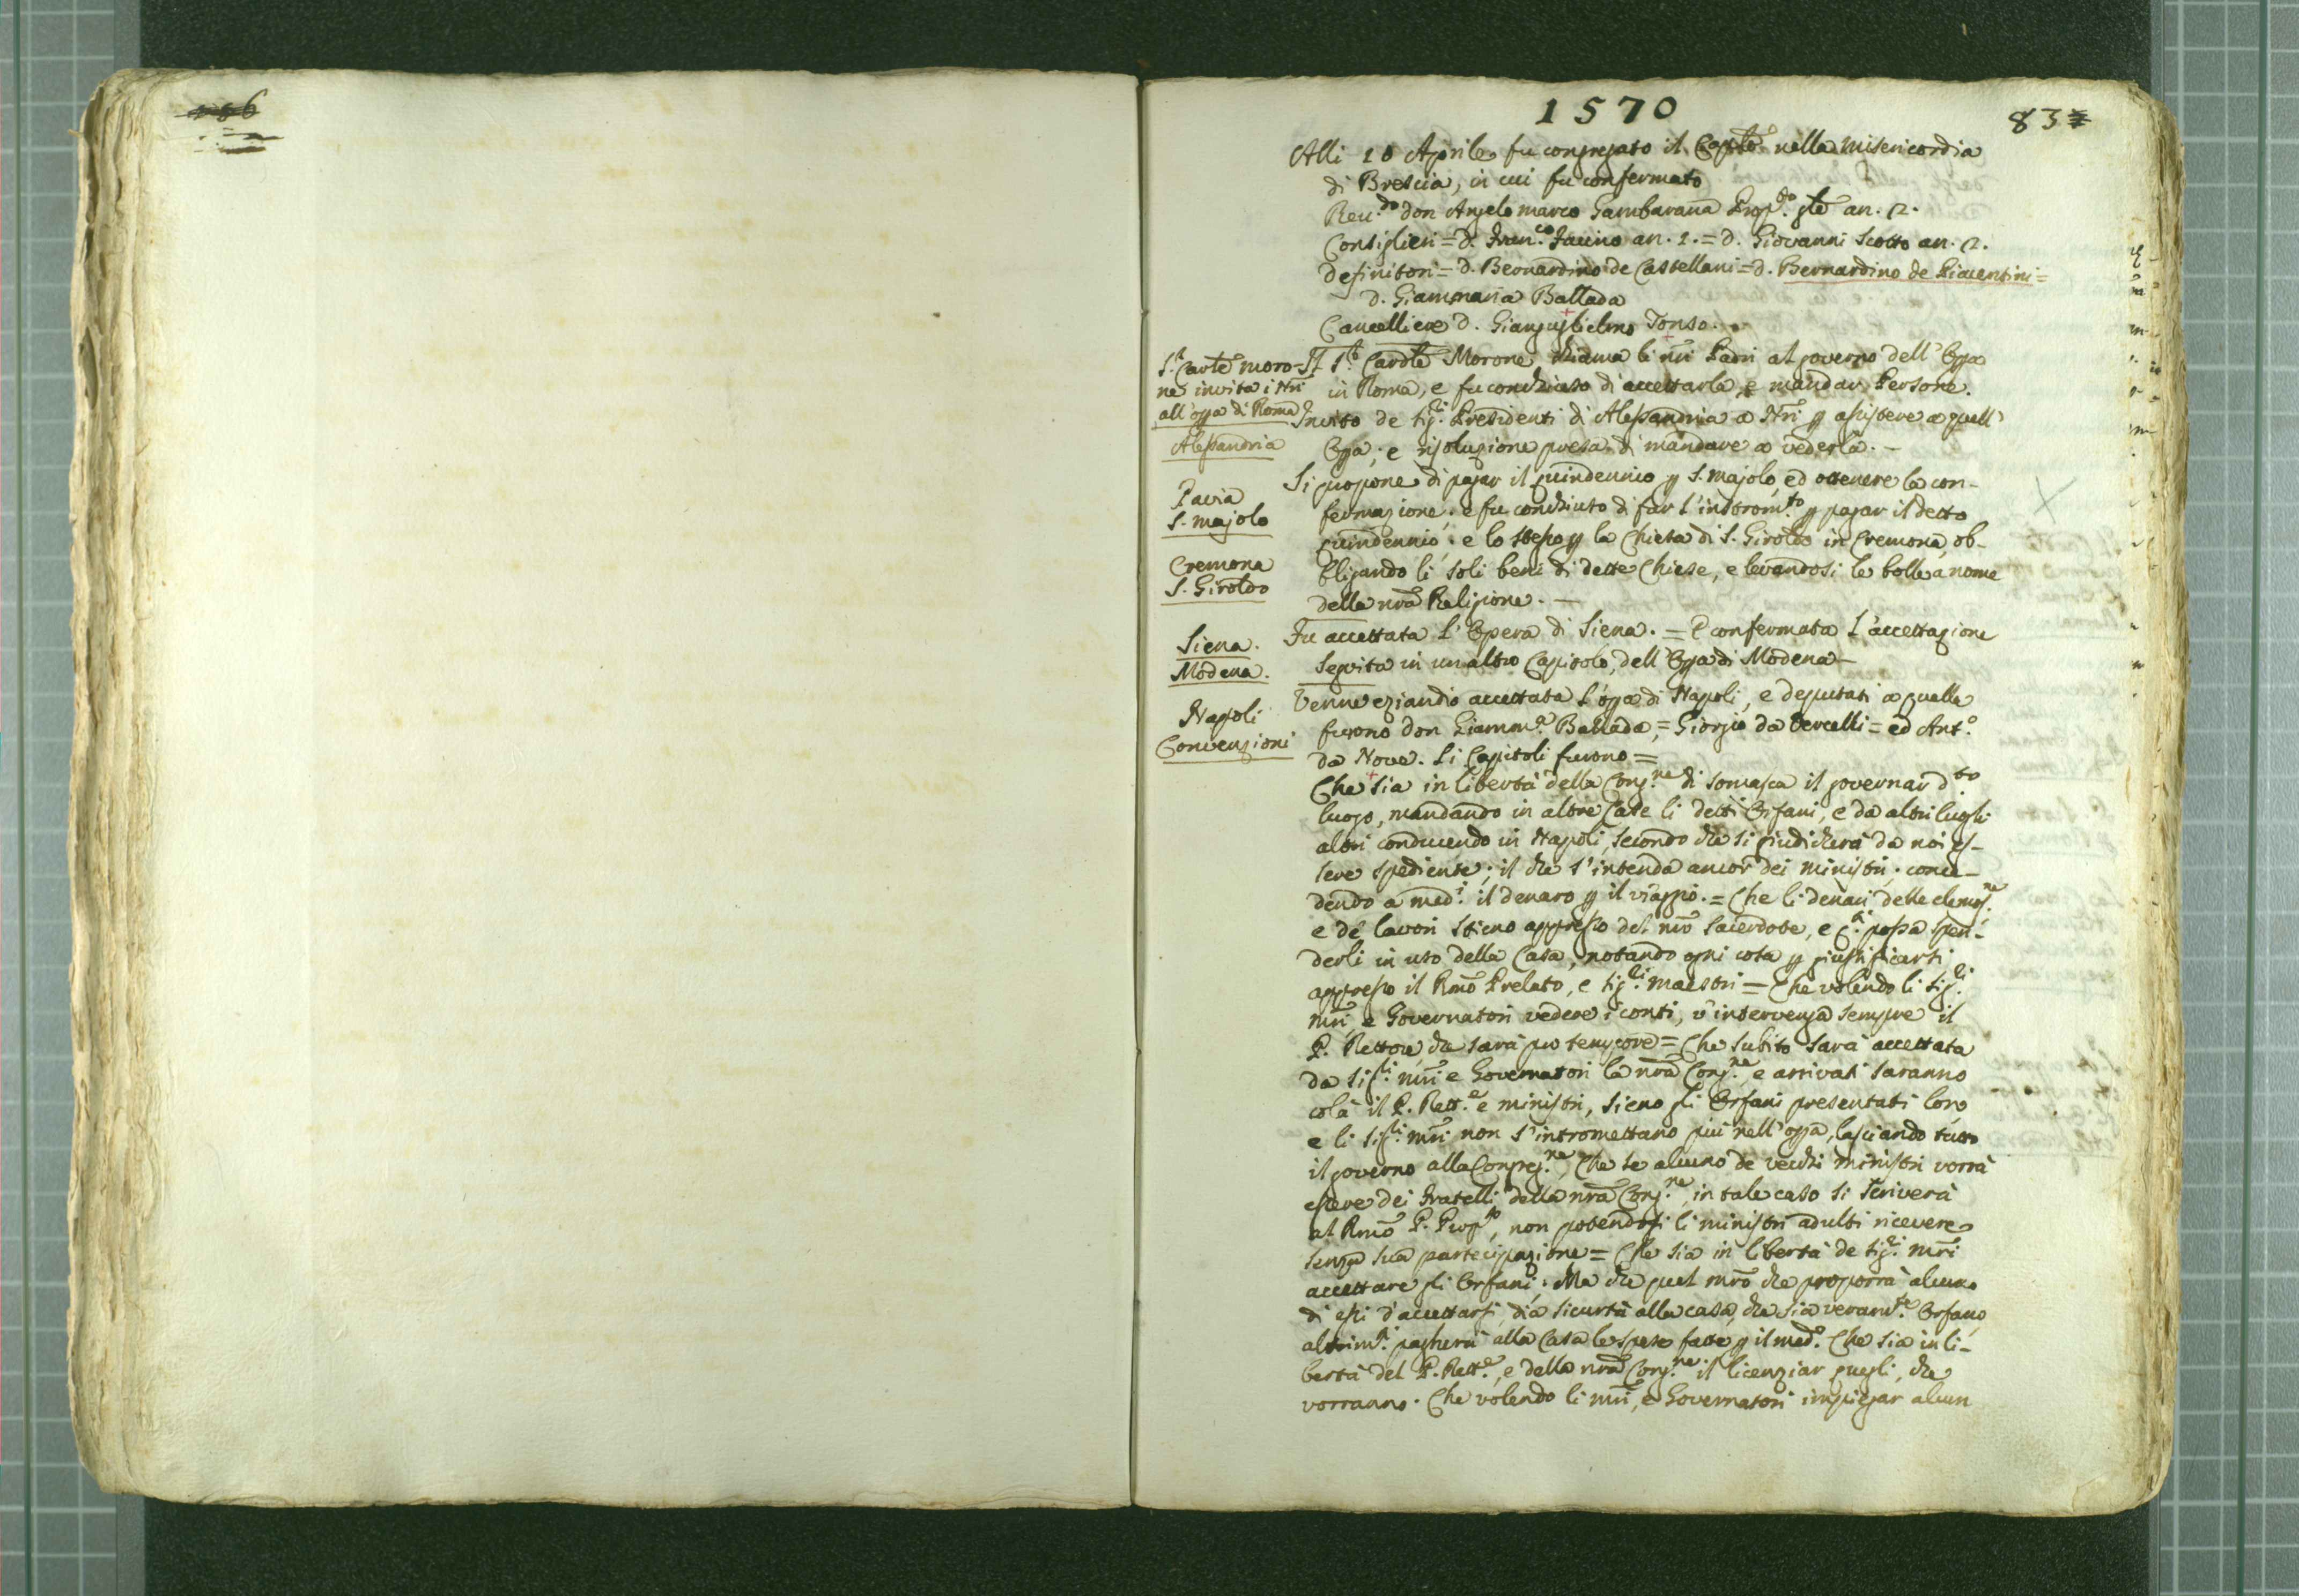 1570
83
Alli 10 Aprile fu congregato il Caplo nella Misericordia
di Brescia, in cui fu confermato
Reu.do don Angelo marco Gambarana Prop.to gle an. 2.
Consiglieri = d. Fran.co Faurino an. 2. = d. Giovanni Scotto an. 2.
definitori = d. Bernardino de Castellani = d. Bernardino de Piacentini =
d. Giammaria Ballada
Cancelliere d. Gianguglielmo Tonso.
S.r Carle moro-
ne invita i Nri
all'opa di Roma
Il S.r Cardle Morone chiama li nri Padri al governo dell'Opa
in Roma, e fu conchiuso di accettarla, e mandar Persone.
Alessandria
Invito de sig.ri Presidenti di Alessandria a Nri p assistere a quell'
Opa; e risoluzione presa di mandare a vederla. —
Pavia
S. majolo
Si propone di pagar il quindennio p S. majolo, ed ottenere la con-
fermazione. e fu conchiuto di far l'instrom.to p pagar il detto
Cremona
S. Giroldo
quindennio. e lo stesso p la Chiesa di S. Giroldo in Cremona, ob-
bligando li soli beni di dette Chiese, e levandosi le bolle a nome
della nrã Religione. —
Siena.
Modena.
Fu accettata l'Opera di Siena. = E confermata l'accettazione
seguita in un altro Capitolo, dell'Opa di Modena —
Napoli
Convenzioni
Venne eziandio accettata l'opa di Napoli, e deputati a quella
furono don Giamm.a Ballada, = Giorgio da Vercelli = ed Ant.o
da Nove. Li Capitoli furono =
Che sia in libertà della Cong.ne di somasca il governar d.to
luogo, mandando in altre Case li detti Orfani, e da altri luoghi
altri conducendo in Napoli, secondo che si giudicherà da noi es-
sere spediente; il che s'intenda ancor dei ministri. conce-
dendo a med.i il denaro p il viaggio. = Che li denari delle elemos.ne
e de lavori stieno appresso del nrõ Sacerdote, e possa spen-
derli in uso della Casa, notando ogni cosa p giustificarsi
appresso il Rmõ Prelato, e sig.ri maestri = Che volendo li sig.ri
mri, e Governatori vedere i conti, v'intervenga sempre il
P. Rettore, che sarà pro tempore = Che subito sarà accettata
da sig.ri mri e Governatori la nrã Cong.ne, e arrivati saranno
colà il P. Rett.e e ministri, sieno gli Orfani presentati loro
e li sig.ri mri non s'intromettano più nell'opa, lasciando tutto
il governo alla Congreg.ne, Che se alcuno de vecchi ministri vorrà
essere dei Fratelli della nrã Cong.ne, in tale caso si scriverà
al Rmõ P. Prop.to, non potendosi li ministri adulti ricevere
senza sua partecipazione = Che sia in libertà de sig.ri mri
accettare gli Orfani; Ma che quel mrõ che proporrà alcuno
di essi d'accettarsi, dia sicurtà alla casa, che sia veram.te Orfano,
altrim.ti pagherà alla Casa le spese fatte p il med.o Che sia in li-
bertà del P. Rett.e, e della nrã Cong.ne il licenziar quegli, che
vorranno. Che volendo li mri, e Governatori impiegar alcun